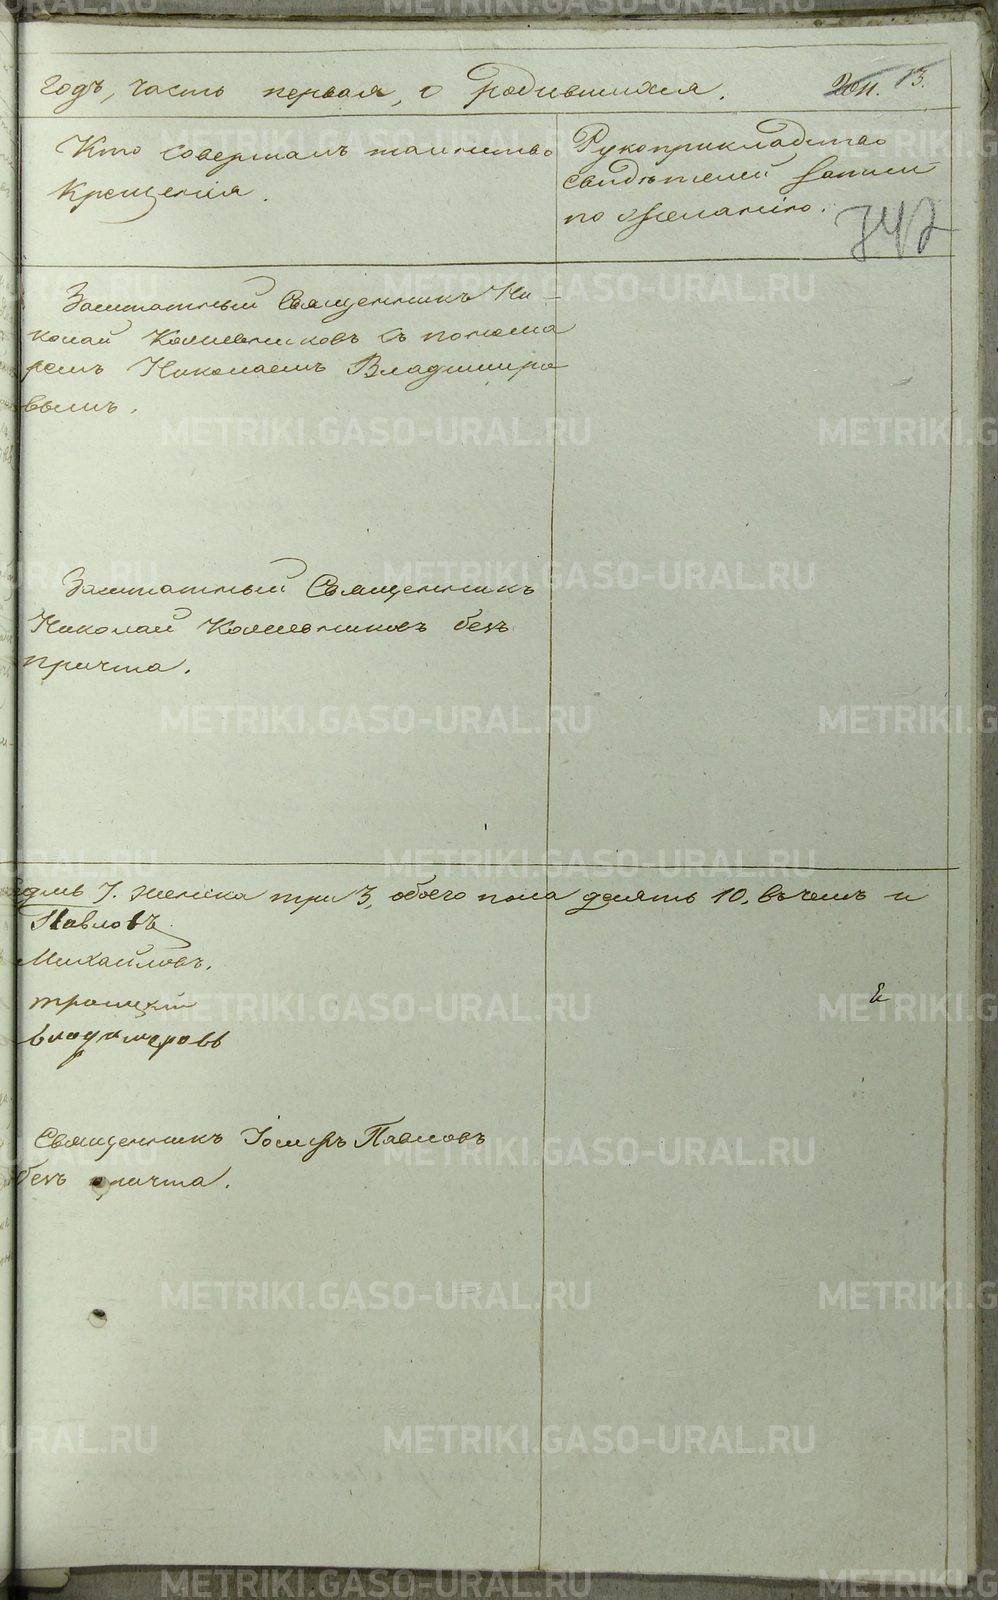 годъ, часть первая, о родившихся. 13.
Кто совершалъ таинство
Крещенія.
Рукоприкладство
свидѣтелей записи
по желанію.
742
Заштатный Священникъ Ни-
колай Кожевниковъ съ понома
ремъ Николаемъ Владимиро
вымъ.
Заштатный Священникъ
Николай Кожевниковъ безъ
причта.
седмь 7. женска три 3, обоего пола десять 10, въ чемъ и
Павловъ
Михайловъ.
троицкій
владимеровъ
Священникъ Іосифъ Павловъ
безъ причта.
METRIKI.GASO-URAL.RU